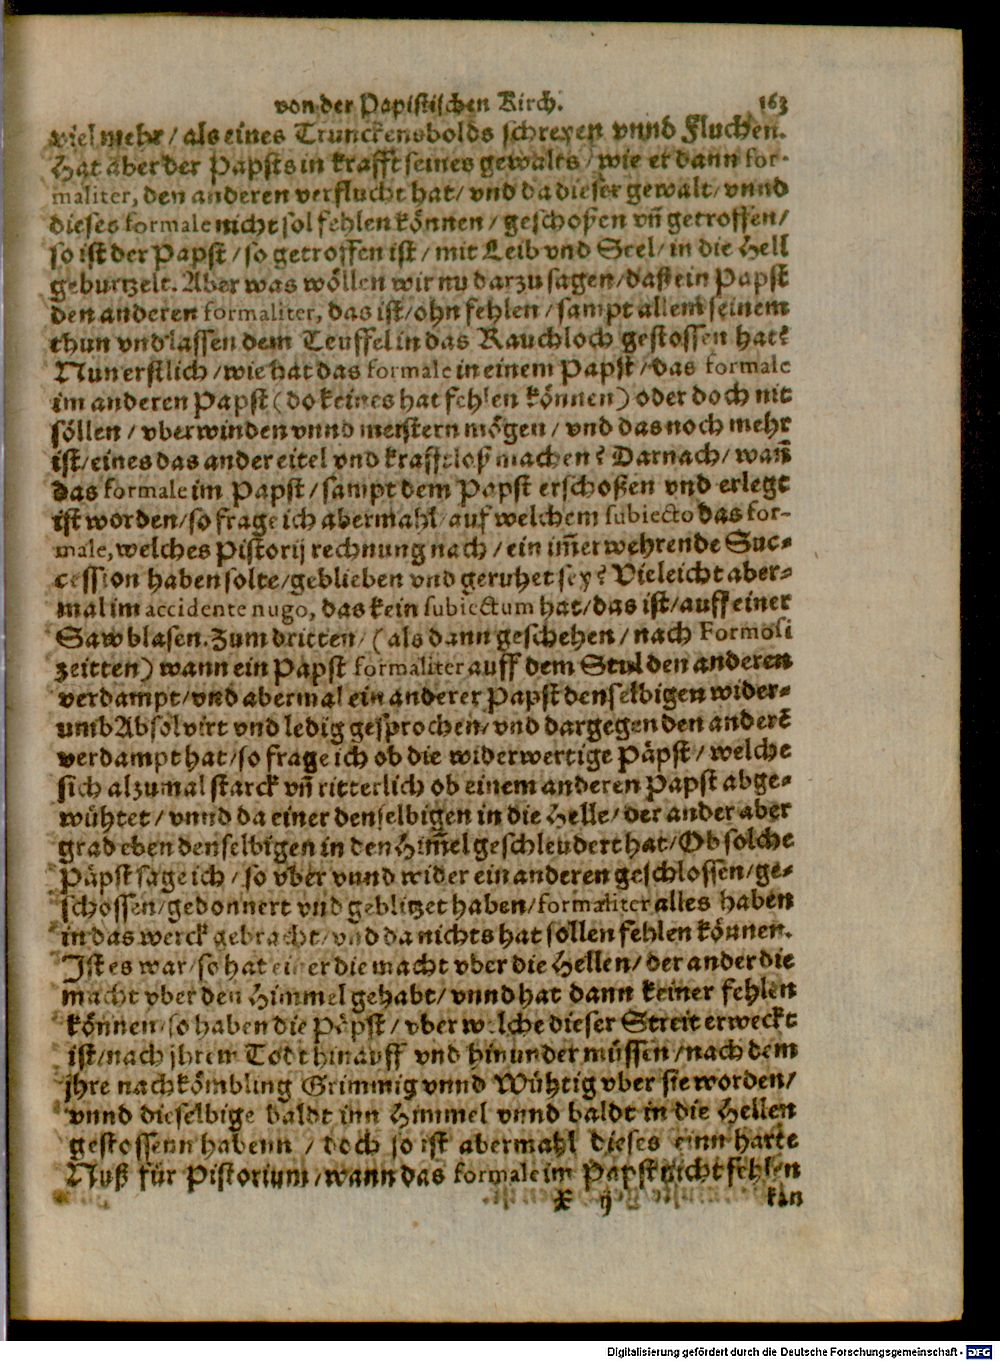 von der Papistischen Kirch. 163
viel mehr / als eines Trunckenbolds schreyen vnnd Fluchen.
Hat aber der Papst in krafft seines gewalts / wie er dann for-
maliter, den anderen verflucht hat / vnd da dieser gewalt / vnnd
dieses formale nicht sol fehlen können / geschoßen vn̄ getroffen /
so ist der Papst / so getroffen ist / mit Leib vnd Seel / in die Hell
geburtzelt. Aber was wöllen wir nu darzu sagen / daß ein Papst
den anderen formaliter, das ist / ohn fehlen / sampt allem seinem
thun vnd lassen dem Teuffel in das Rauchloch gestossen hat?
Nun erstlich / wie hat das formale in einem Papst / das formale
im anderen Papst (do keines hat fehlen können) oder doch nit
söllen / vberwinden vnnd meistern mögen / vnd das noch mehr
ist / eines das ander eitel vnd krafftloß machen? Darnach / wañ
das formale im Papst / sampt dem Papst erschoßen vnd erlegt
ist worden / so frage ich abermahl / auf welchem subiecto das for-
male, welches Pistorij rechnung nach / ein im̄er wehrende Suc-
cession haben solte / geblieben vnd geruhet sey? Vieleicht aber-
mal im accidente nugo, das kein subiectum hat / das ist / auff einer
Sawblasen. Zum dritten / (als dann geschehen / nach Formosi
zeitten) wann ein Papst formaliter auff dem Stul den anderen
verdampt / vnd abermal ein anderer Papst denselbigen wider-
umb Absolvirt vnd ledig gesprochen / vnd dargegen den anderē
verdampt hat / so frage ich ob die widerwertige Päpst / welche
sich alzumal starck vn̄ ritterlich ob einem anderen Papst abge-
wühtet / vnnd da einer denselbigen in die Helle / der ander aber
grad eben denselbigen in den Him̄el geschleudert hat / Ob solche
Päpst sage ich / so vber vnnd wider ein anderen geschlossen / ge-
schossen / gedonnert vnd geblitzet haben / formaliter alles haben
in das werck gebracht / vnd da nichts hat sollen fehlen können.
Ist es war / so hat einer die macht vber die Hellen / der ander die
macht vber den Himmel gehabt / vnnd hat dann keiner fehlen
können / so haben die Päpst / vber welche dieser Streit erweckt
ist / nach jhrem Todt hinauff vnd hinunder müssen / nach dem
jhre nachkömbling Grimmig vnnd Wühtig vber sie worden /
vnnd dieselbige baldt inn Himmel vnnd baldt in die Hellen
gestossenn habenn / doch so ist abermahl dieses einn harte
Nuß für Pistorium / wann das formale im Papst nicht fehlen
X ij kan
Digitalisierung gefördert durch die Deutsche Forschungsgemeinschaft - DFG